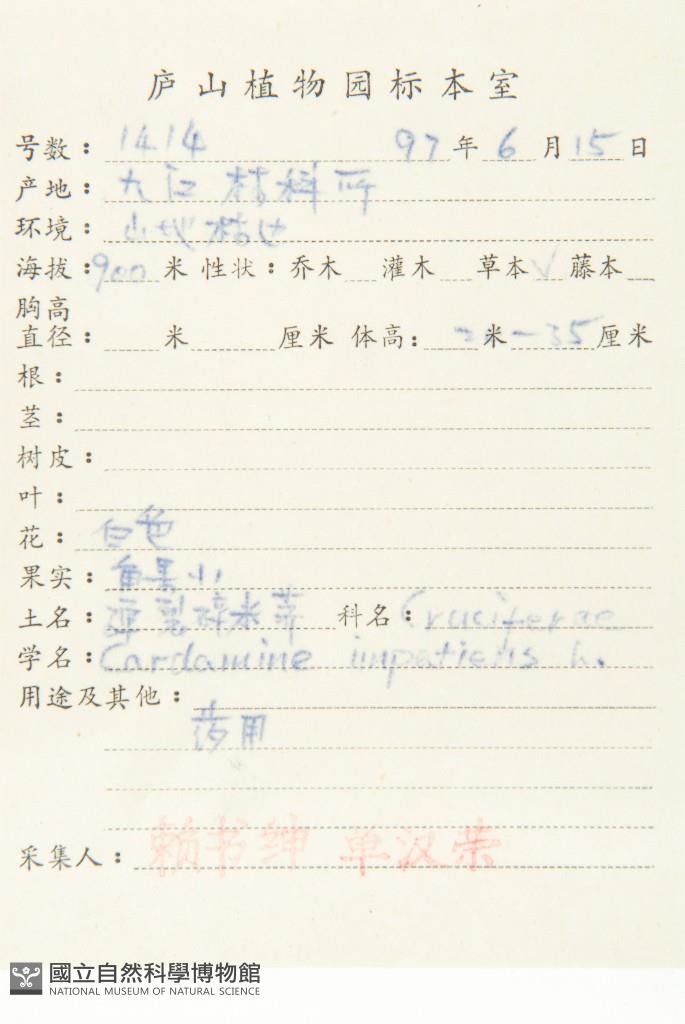 庐山植物园标本室
号数：1414 97年6月15日
产地：九江 林科所
环境：山地林边
海拔：900米 性状：乔木 灌木 草本√ 藤本
胸高
直径： 米 厘米 体高： 米 35厘米
根：
茎：
树皮：
叶：
花：白色
果实：角果小
土名：弹裂碎米荠 科名：Cruciferae
学名：Cardamine impatiens L.
用途及其他：
药用
采集人：赖书绅 单汉荣
國立自然科學博物館
NATIONAL MUSEUM OF NATURAL SCIENCE